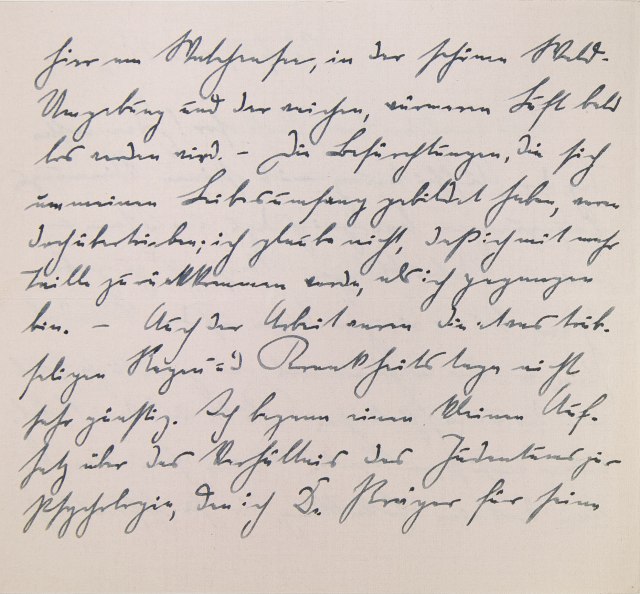 hier am Walchensee, in der schönen Wald-
Umgebung und der weichen, wärmeren Luft bald
los werden wird. – Die Befürchtungen, die sich
um meinen Leibesumfang gebildet haben, waren
doch übertrieben; ich glaube nicht, daß ich mit mehr
Taille zurückkommen werde, als ich gegangen
bin. – Auch der Arbeit waren die etwas trüb-
seligen Regen- u. Krankheitstage nicht
sehr günstig. Ich begann einen kleinen Auf-
satz über das Verhältnis des Judentums zur
Psychologie, den ich Dr. Prager für seine